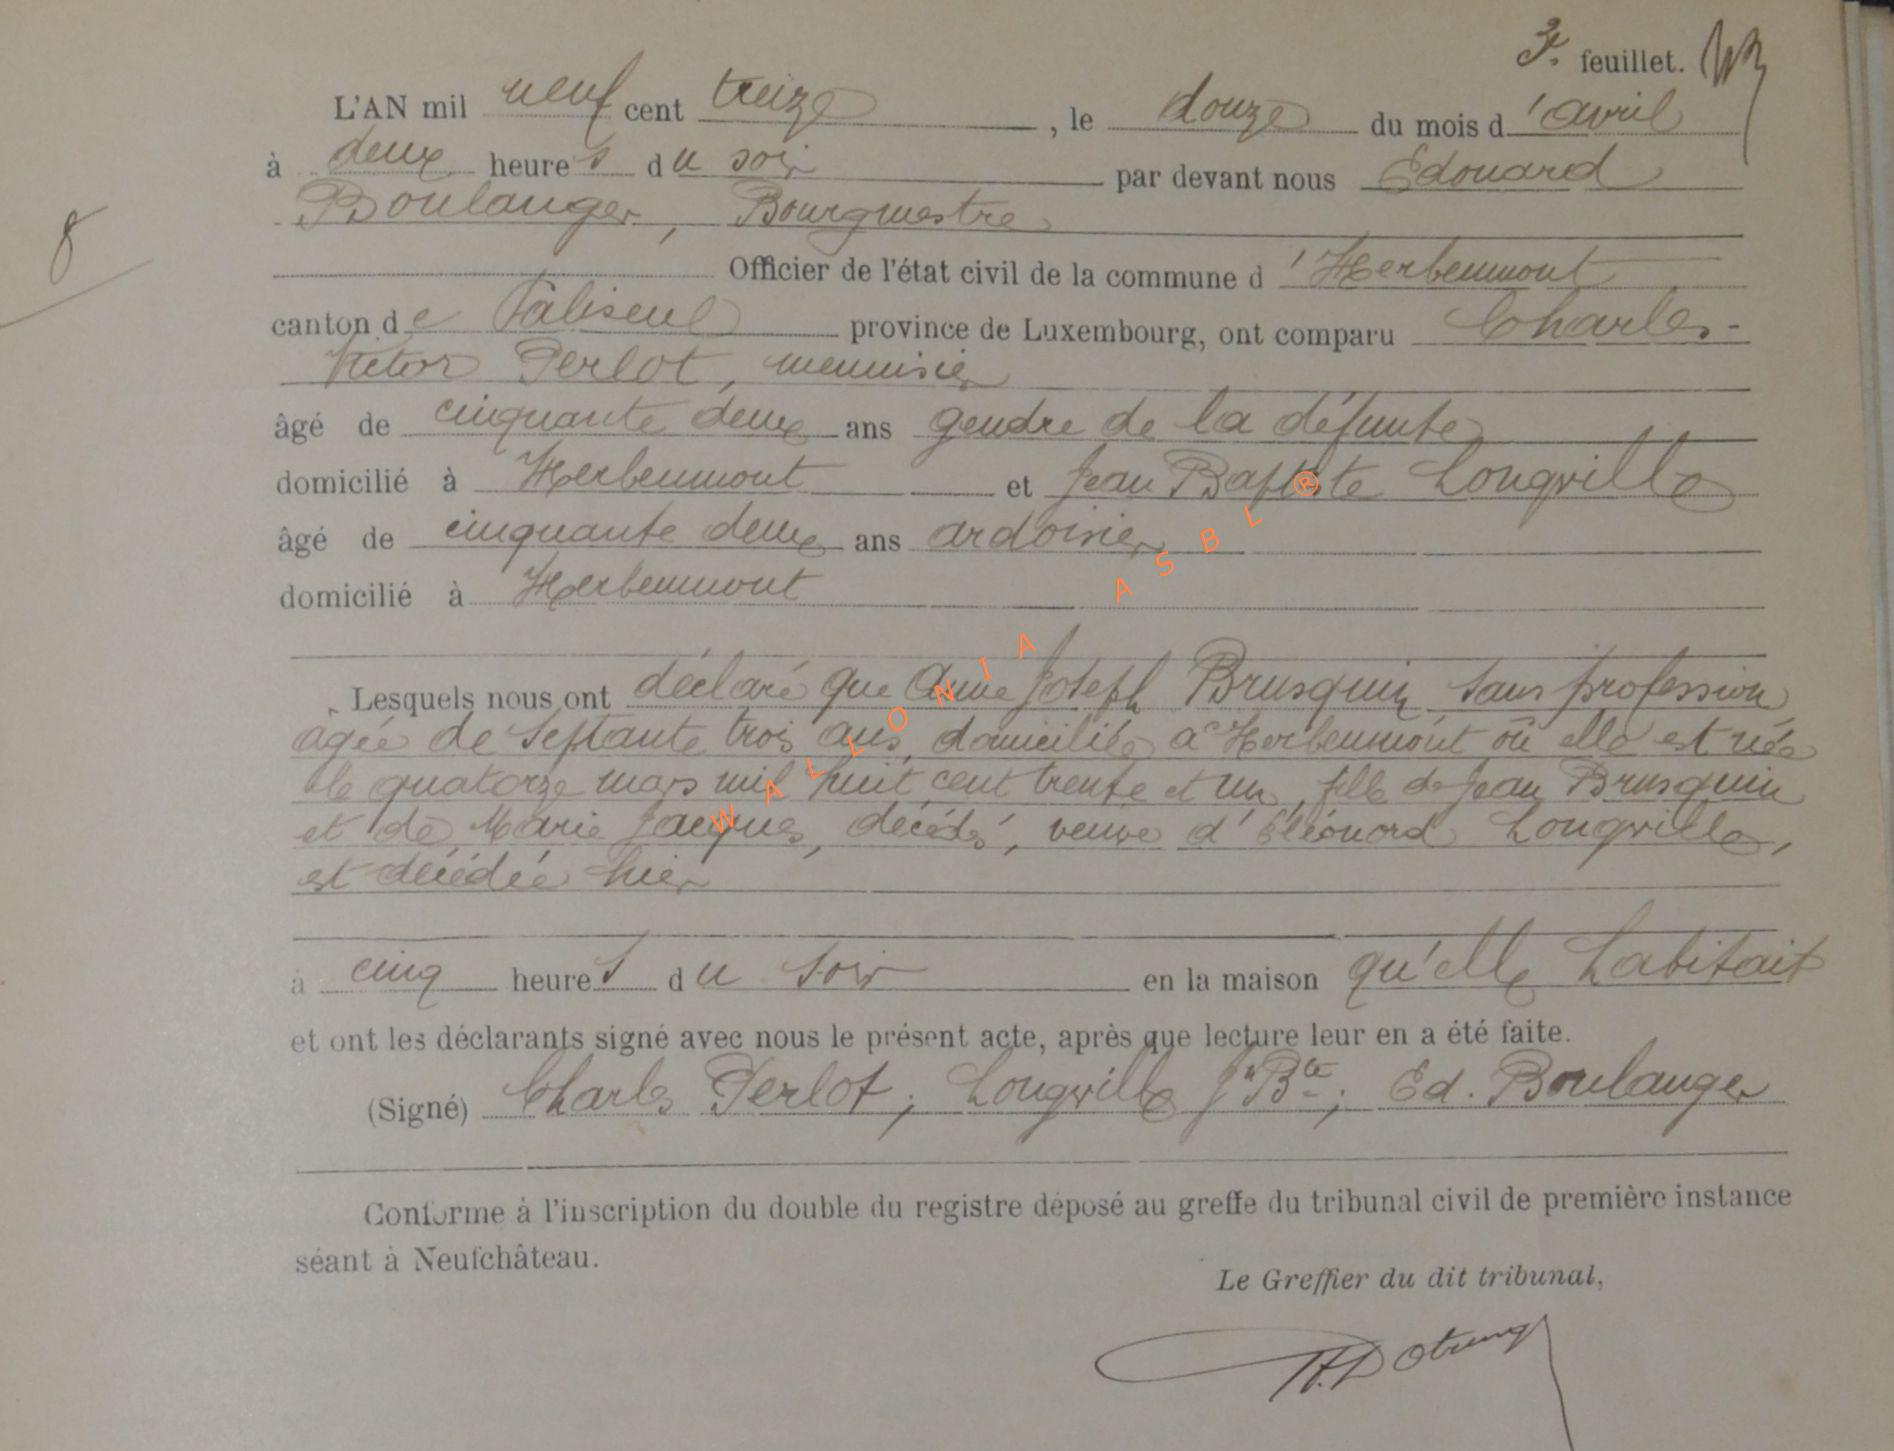 3e. feuillet.
L'AN mil neuf cent treize, le douze du mois d'avril
à deux heures du soir par devant nous Edouard
Boulanger, Bourgmestre
8
Officier de l'état civil de la commune d'Herbeumont
canton de Paliseul province de Luxembourg, ont comparu Charles-
Victor Perlot, menuisier
âgé de cinquante deux ans gendre de la défunte
domicilié à Herbeumont et Jean Baptiste Longville
âgé de cinquante deux ans ardoisier
domicilié à Herbeumont
Lesquels nous ont déclaré que Anne Joseph Brusquin, sans profession
âgée de septante trois ans, domiciliée à Herbeumont où elle est née
le quatorze mars mil huit cent trente et un, fille de Jean Brusquin
et de Marie Jacques, décédés, veuve d'Eléonord Longville,
est décédée hier
à cinq heures du soir en la maison qu'elle habitait
et ont les déclarants signé avec nous le présent acte, après que lecture leur en a été faite.
(Signé) Charles Perlot; Longville Jn Bte; Ed. Boulanger
Conforme à l'inscription du double du registre déposé au greffe du tribunal civil de première instance
séant à Neufchâteau.
Le Greffier du dit tribunal,
WALLONIA ASBL ®